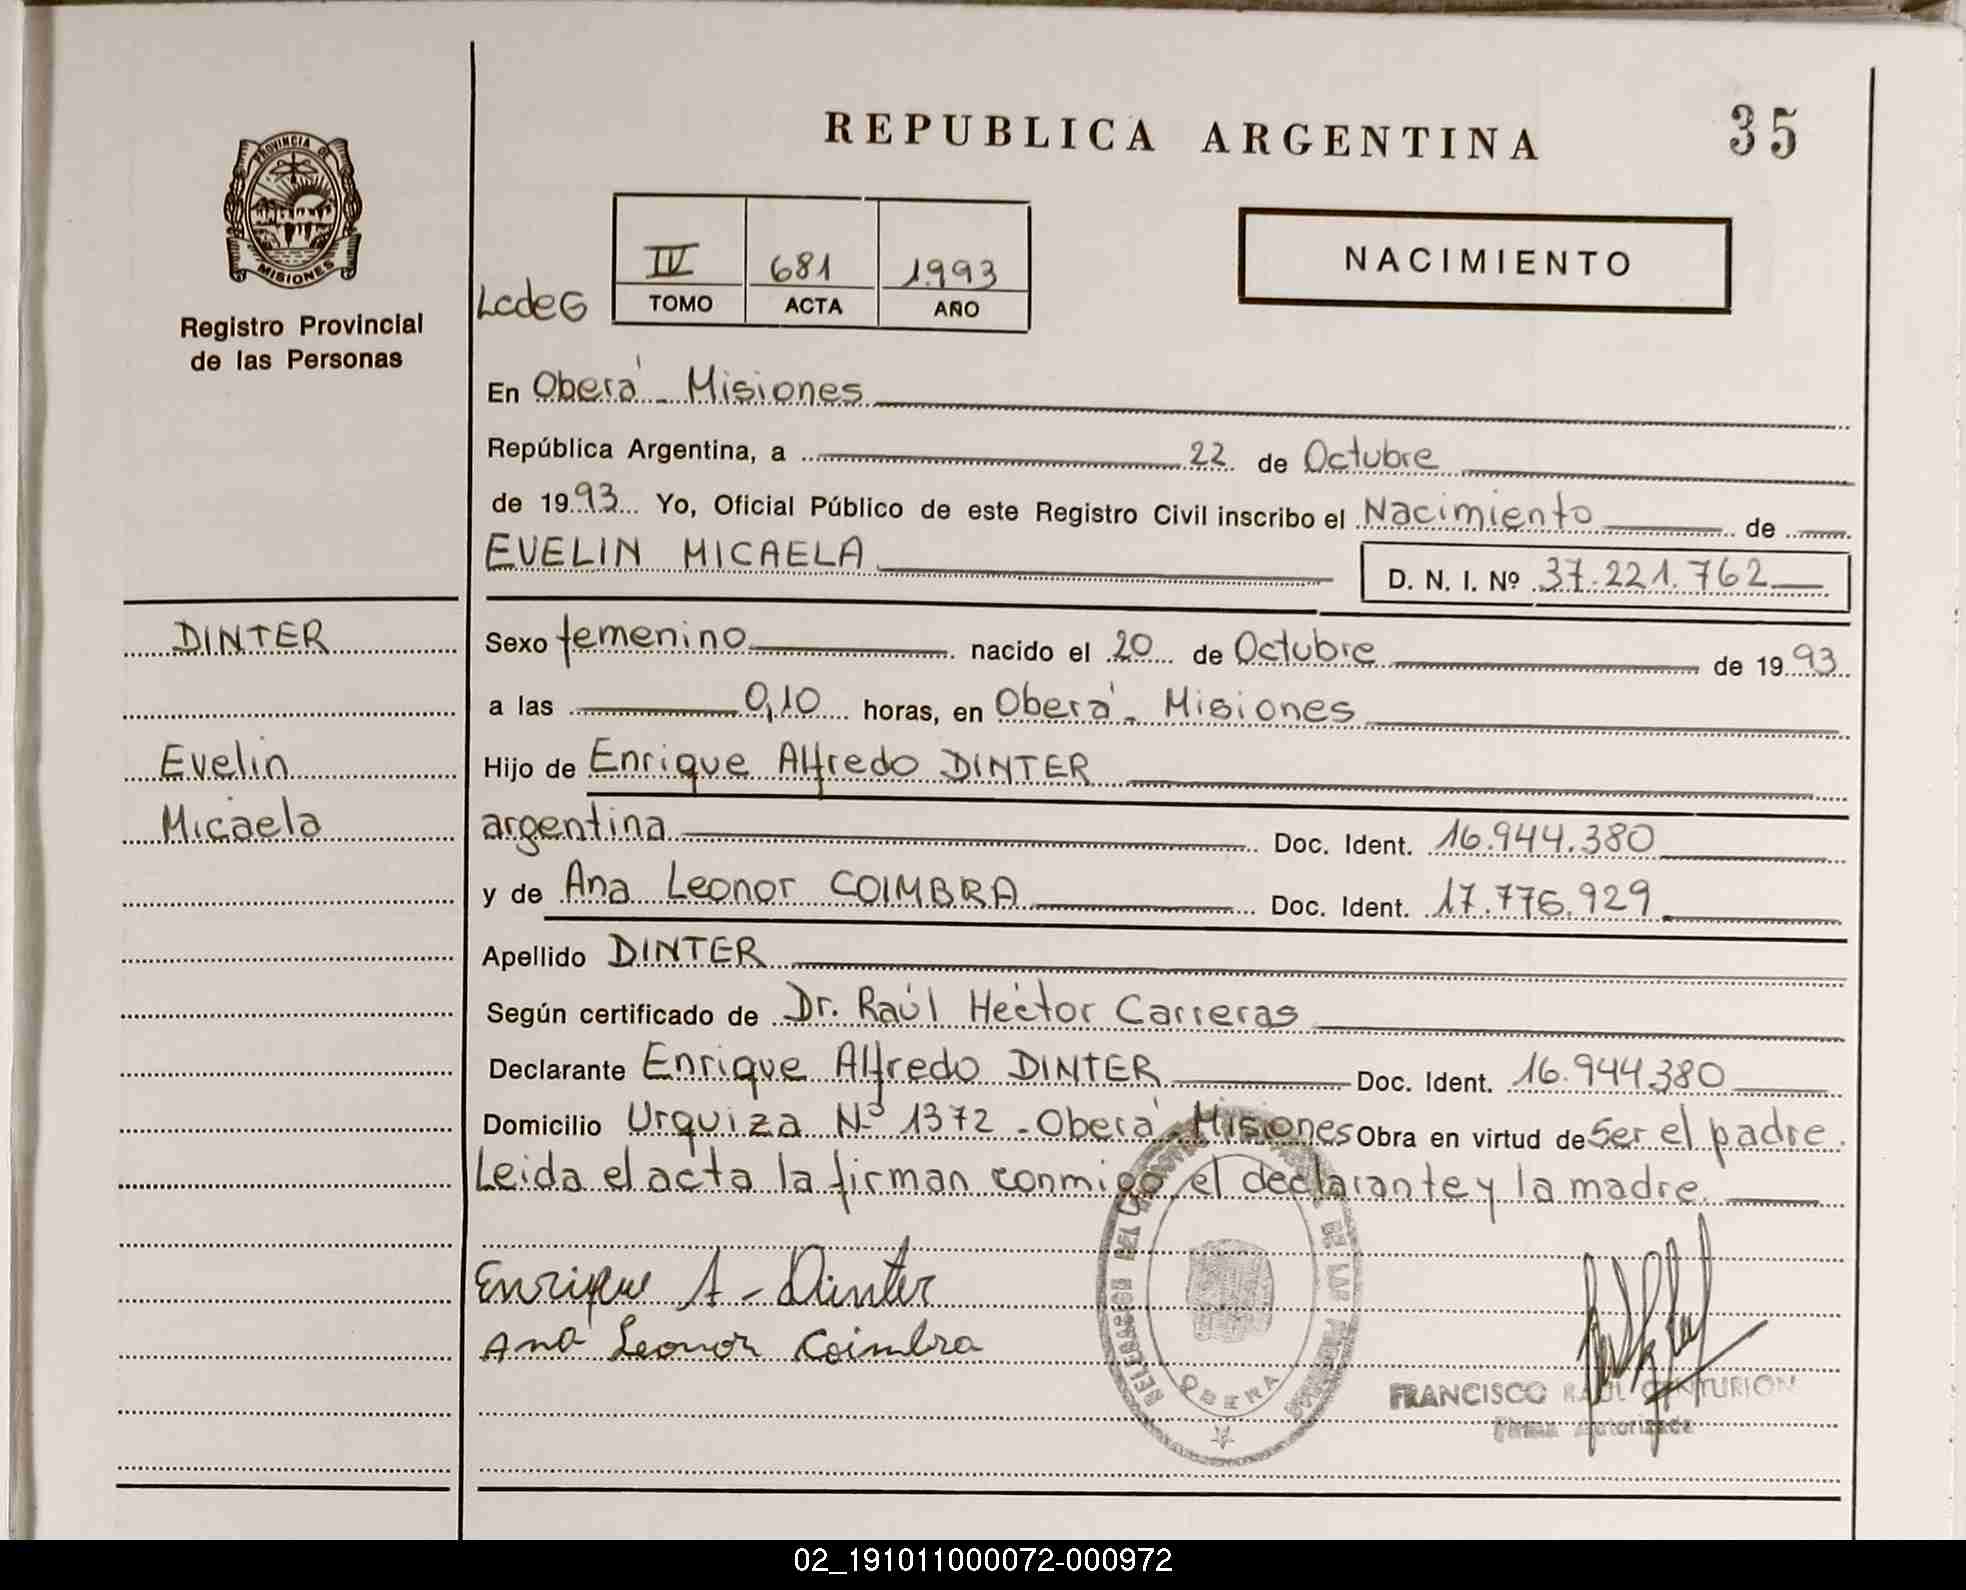 REPUBLICA ARGENTINA
35
PROVINCIA DE
MISIONES
Registro Provincial
de las Personas
LcdeG
IV 681 1.993
TOMO ACTA AÑO
NACIMIENTO
En Oberá - Misiones
República Argentina, a 22 de Octubre
de 1993 Yo, Oficial Público de este Registro Civil inscribo el Nacimiento de
EVELIN MICAELA
D. N. I. Nº 37.221.762
DINTER
Evelin
Micaela
Sexo femenino nacido el 20 de Octubre de 1993
a las 0,10 horas, en Oberá - Misiones
Hijo de Enrique Alfredo DINTER
argentina Doc. Ident. 16.944.380
y de Ana Leonor COIMBRA Doc. Ident. 17.776.929
Apellido DINTER
Según certificado de Dr. Raúl Héctor Carreras
Declarante Enrique Alfredo DINTER Doc. Ident. 16.944.380
Domicilio Urquiza Nº 1372 - Oberá - Misiones Obra en virtud de Ser el padre.
Leida el acta la firman conmigo, el declarante y la madre.
Enrique A - Dinter
Ana Leonor Coimbra
DE LAS
OBERA
FRANCISCO RAUL CENTURION
Firma Autorizada
02_191011000072-000972